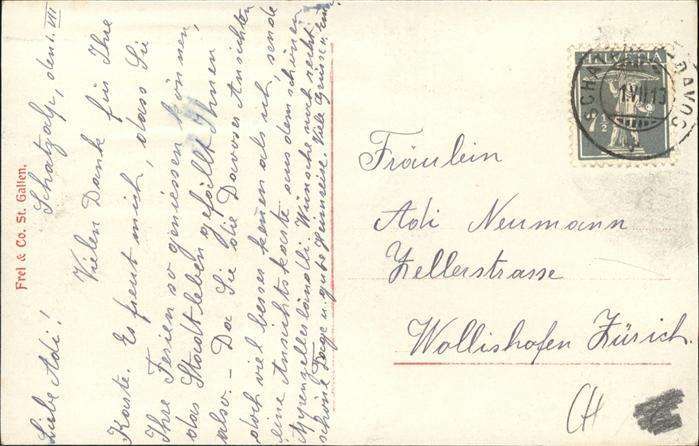 Schatzalp, den 1. VII
Liebe Adi!
Vielen Dank für Ihre
Karte. Es freut mich, dass Sie
Ihre Ferien so geniessen können,
das Stadtleben gefällt Ihnen
also. - Da Sie die Davoser Ansichten
doch viel besser kennen als ich, sende
eine Ansichtskarte aus dem schönen
Wünsche noch recht
schöne Tage u. gute Heimreise. Viele Grüsse v. Ihrer
Frei & Co. St. Gallen.
HELVETIA
7½
SCHATZALP (DAVOS)
1.VII.13
Fräulein
Adi Neumann
Zellerstrasse
Wollishofen Zürich.
CH